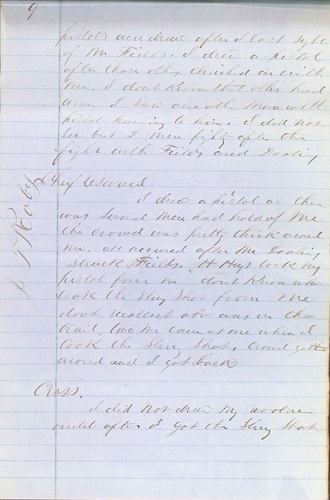 9
pistols were drawn after I lost sight
of Mr Fields. I drew a pistol
after than others clinched in with
me. I dont Know that others had
arms. I saw one other man with
pistol running to him. I did not
see but 2 men fight after the
fight with Fields and Dooling
Chief Resumed
I drew a pistol as there
was several men had hold of me
the crowd was pretty thick around
me. all occured after Mr Dooling
struck Fields. H Hays took my
pistol from me dont Know who
took the Slung Shot from me
dont recollect who was in the
Crowd. two men came at me when I
took the Slung Shot, Crowd gathered
around and I got back
Cross.
I did not draw my revolver
until after I got the Slung Shot